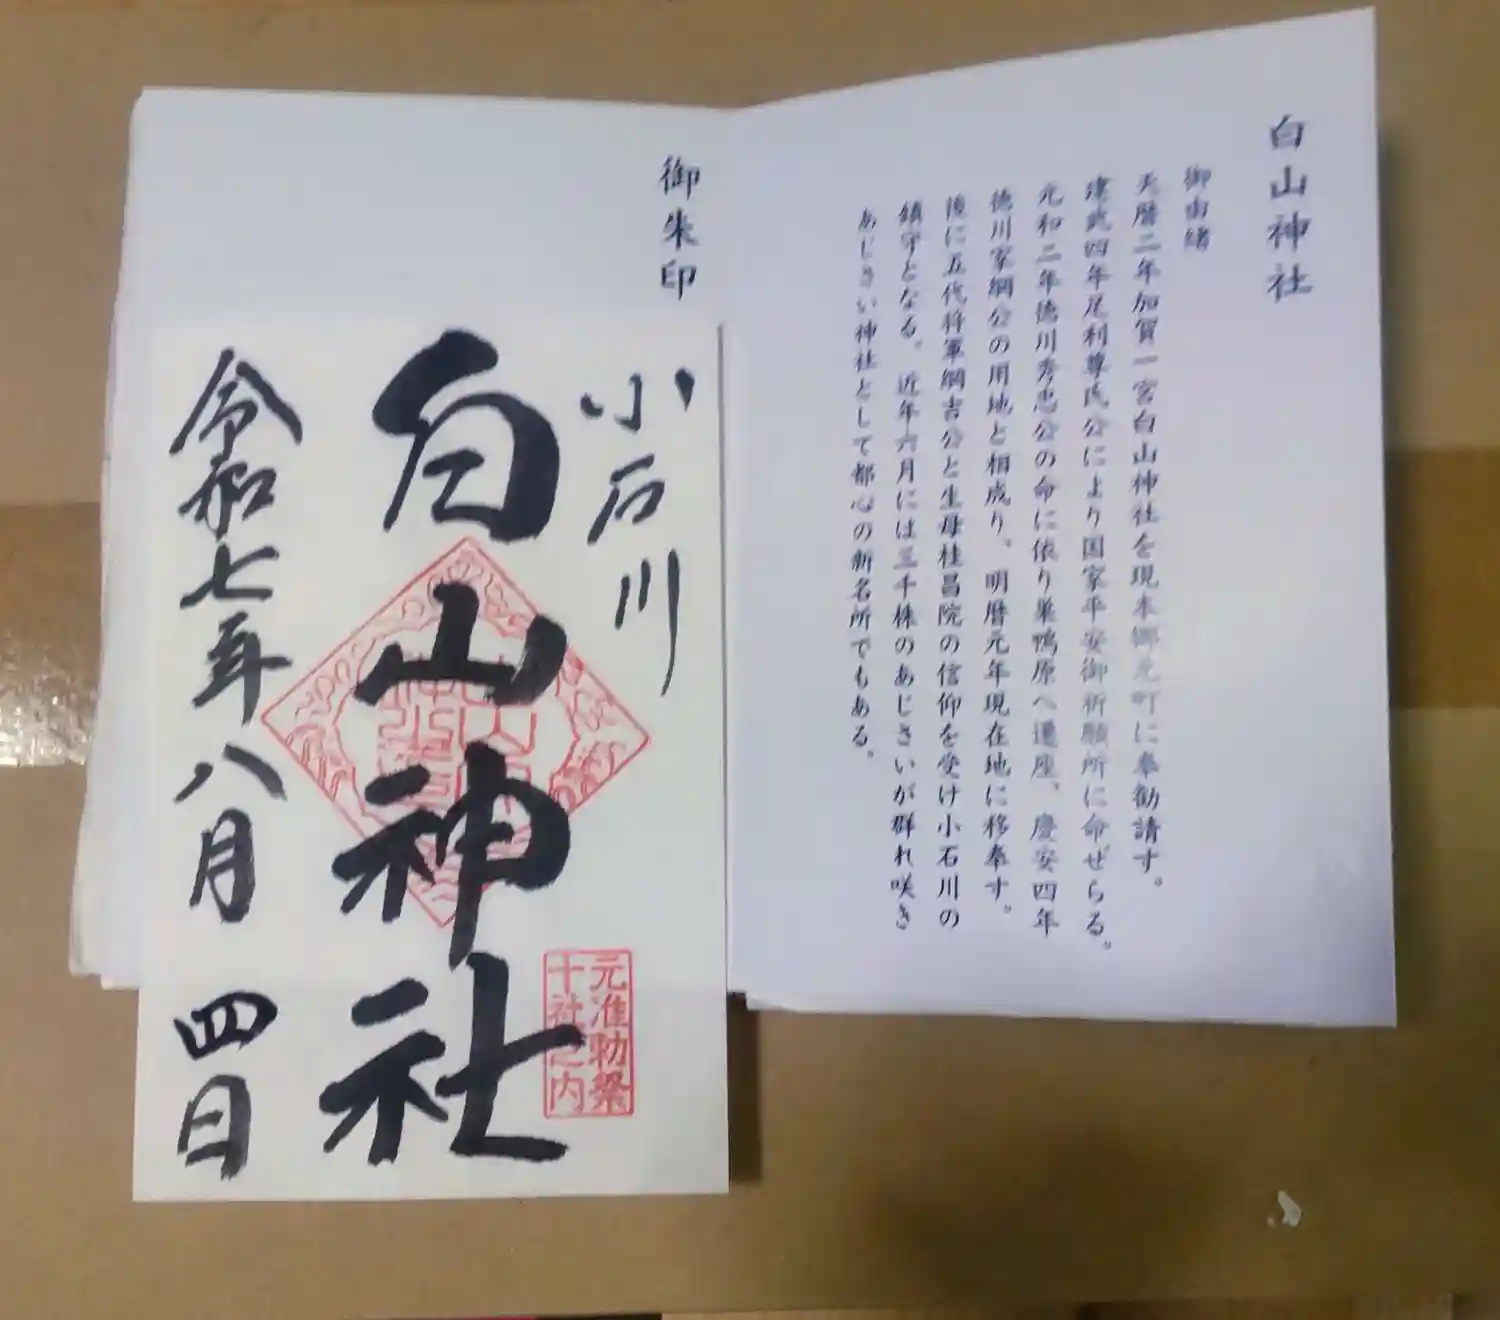 白山神社
御由緒
天暦二年加賀一宮白山神社を現本郷元町に奉勧請す。
建武四年足利尊氏公により国家平安御祈願所に命ぜらる。
元和二年徳川秀忠公の命に依り巣鴨原へ遷座、慶安四年
徳川家綱公の用地と相成り、明暦元年現在地に移奉す。
後に五代将軍綱吉公と生母桂昌院の信仰を受け小石川の
鎮守となる。近年六月には三千株のあじさいが群れ咲き
あじさい神社として都心の新名所でもある。
御朱印
小石川
白山神社
元准勅祭
十社之内
令和七年八月四日